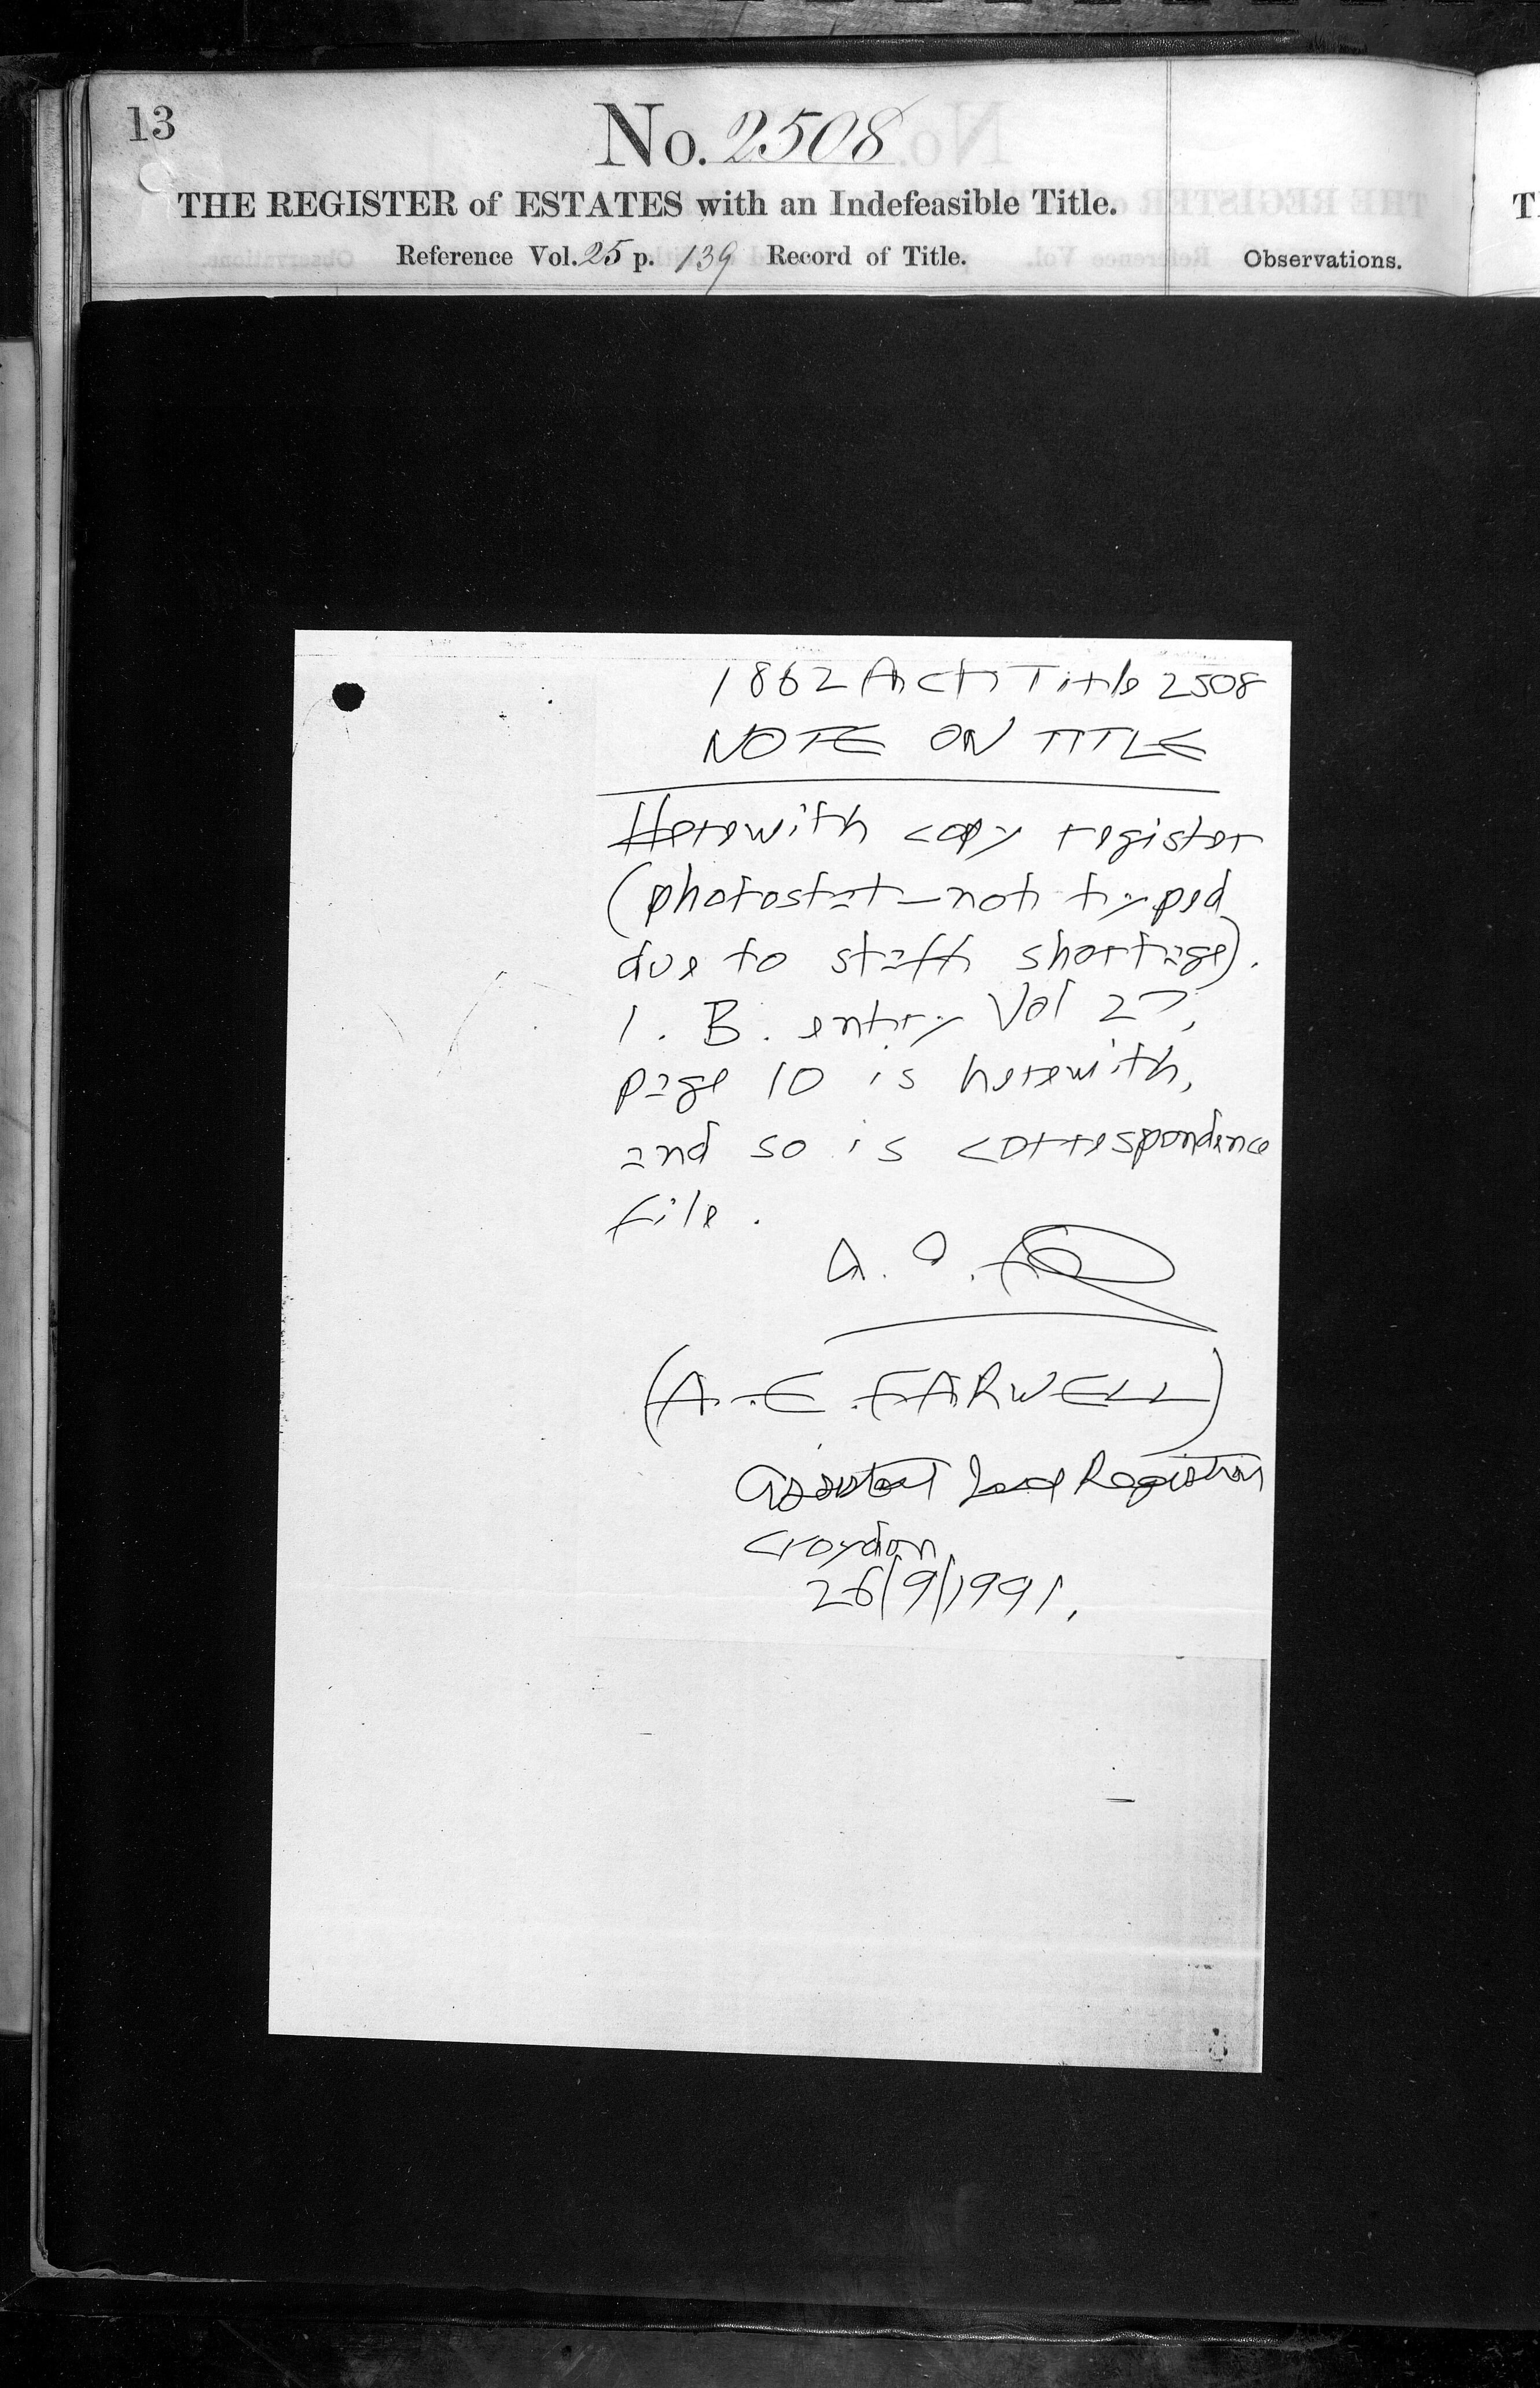 13
No. 2508
THE REGISTER of ESTATES with an Indefeasible Title.
Reference Vol. 25 p. 139 Record of Title.
Observations.
T
1862 Act Title 2508
NOTE ON TITLE
Herewith copy register
(photostat - not typed
due to staff shortage).
I. B. entry Vol 27,
page 10 is herewith,
and so is correspondence
file.
(A. E. FARWELL)
Assistant Land Registrar
Croydon
26/9/1991.